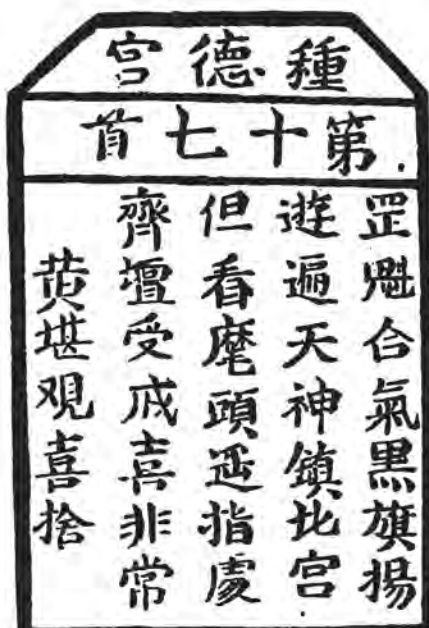 種德宮
第十七首
罡魁合氣黑旗揚
遊遍天神鎮北宮
但看麾頭遥指處
齊壇受戒喜非常
黄堪觀喜捨